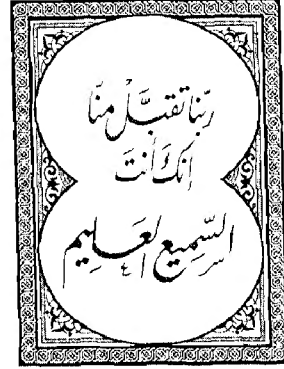 ربّنا تقبَّل منّا
إنّكَ أنتَ
السَّمِيع العَلِيم